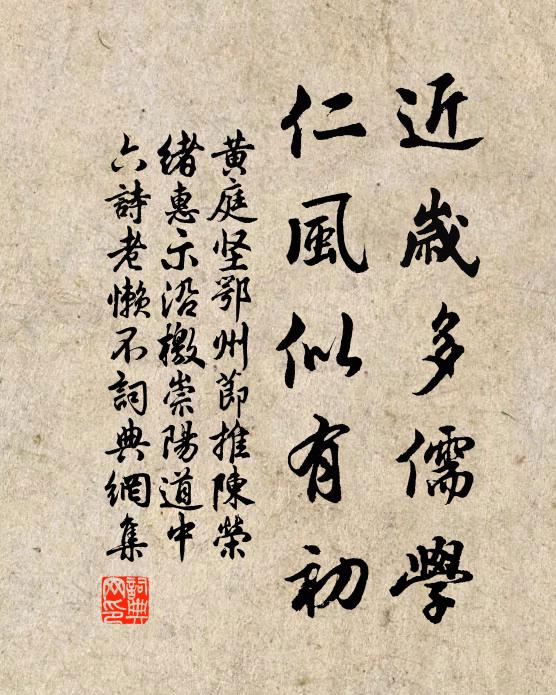 近歲多儒學
仁風似有初
黃庭坚鄂州節推陳榮
緒惠示沿檄崇陽道中
六詩老懶不詞典網集
詞典網印